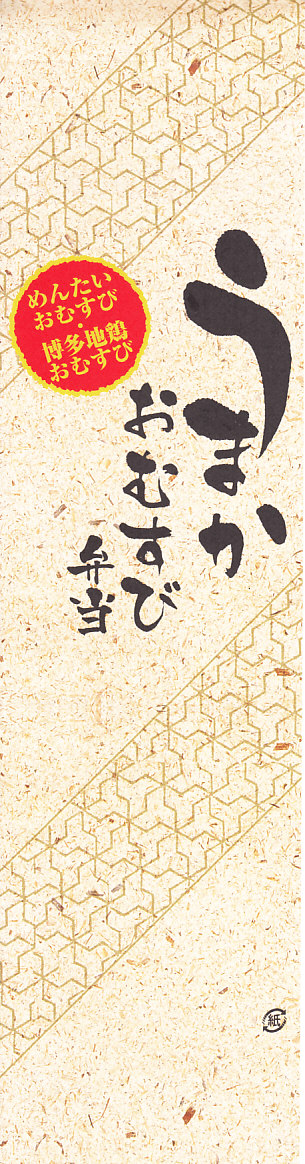 うまか
おむすび
弁当
めんたい
おむすび
・
博多地鶏
おむすび
紙